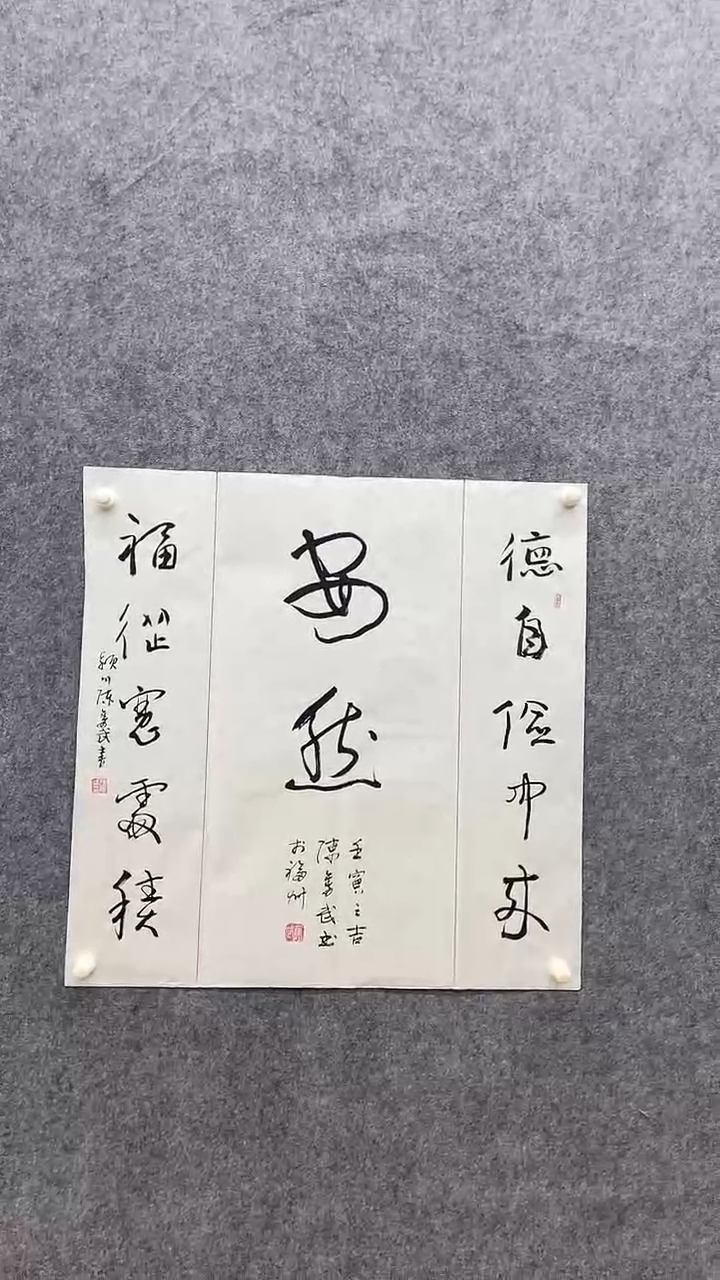 德自俭中来
安然
壬寅之吉
陈为武书
于福州
福从宽处积
颍川陈为武书